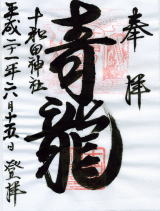 奉拝
青龍
十和田神社
平成二十一年六月十五日 登拝